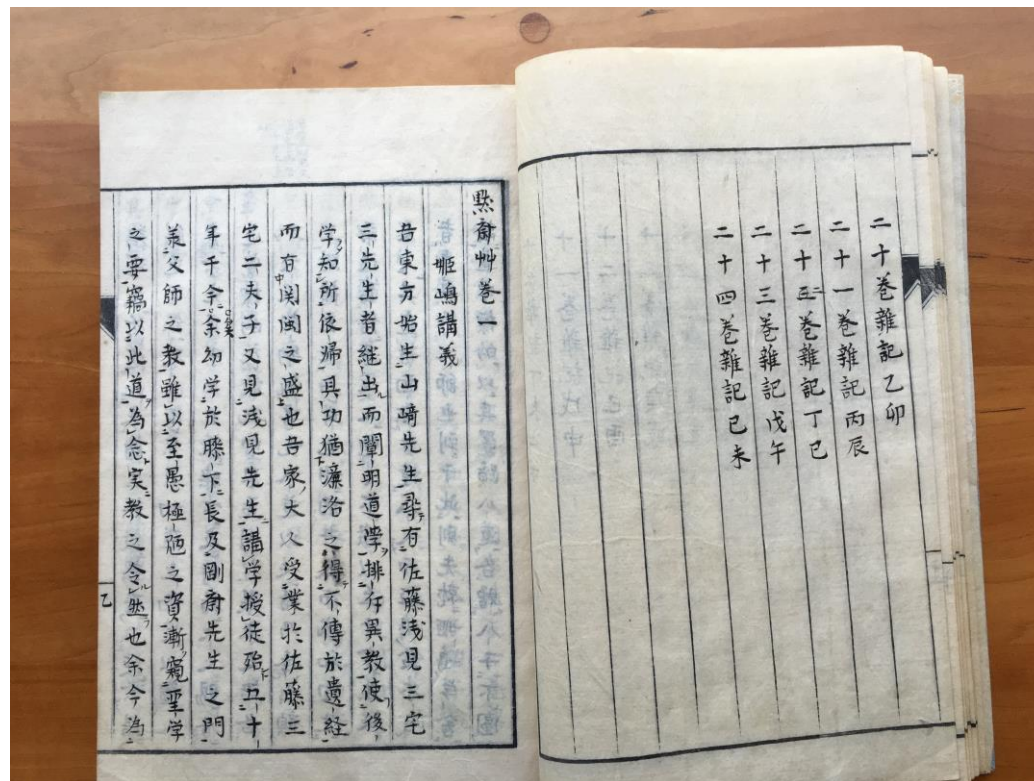 二十巻雜記乙卯
二十一巻雜記丙辰
二十二巻雜記丁巳
二十三巻雜記戊午
二十四巻雜記己未
黙斎艸巻一
姫嶋講義
吾東方始生山﨑先生尋有佐藤浅見三宅
三先生者継出而闡明道学排斥異教使後
学知所依歸其功猶濂洛之得不傳於遺経
而有関閩之盛也吾家大人受業於佐藤三
宅二夫子又見浅見先生講学授徒殆五十
年于今矣余幼学於膝下長及剛斎先生之門
羕父師之教雖以至愚極陋之資漸窺聖学
之要竊以此道為念実教之令然也余今為
乙